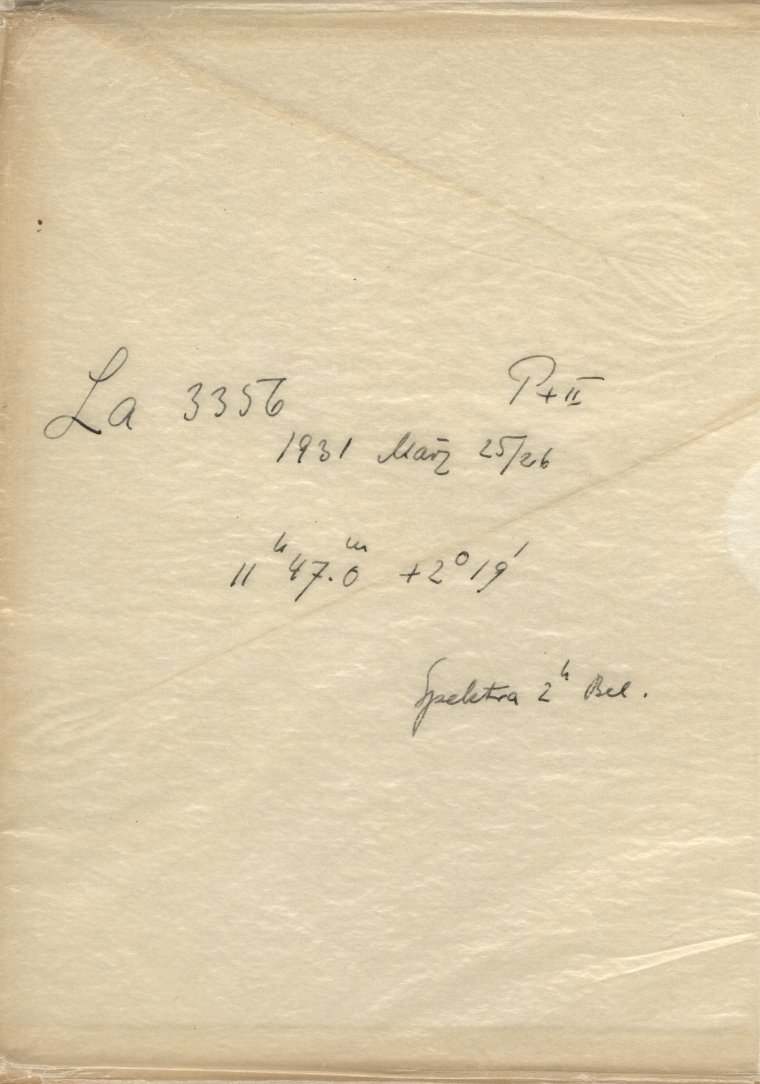 La 3356 P+II
1931 März 25/26
11ʰ 47.0ᵐ +2° 19'
Spektra 2ʰ Bel.